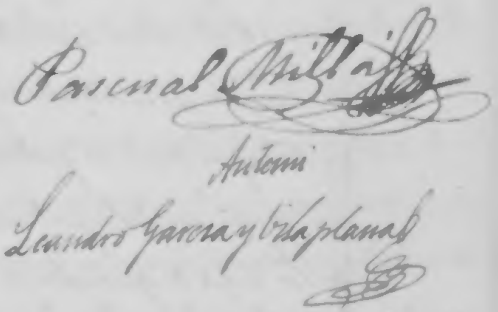 Pascual Millán
Antemi
Leandro Garcia y Vilaplana